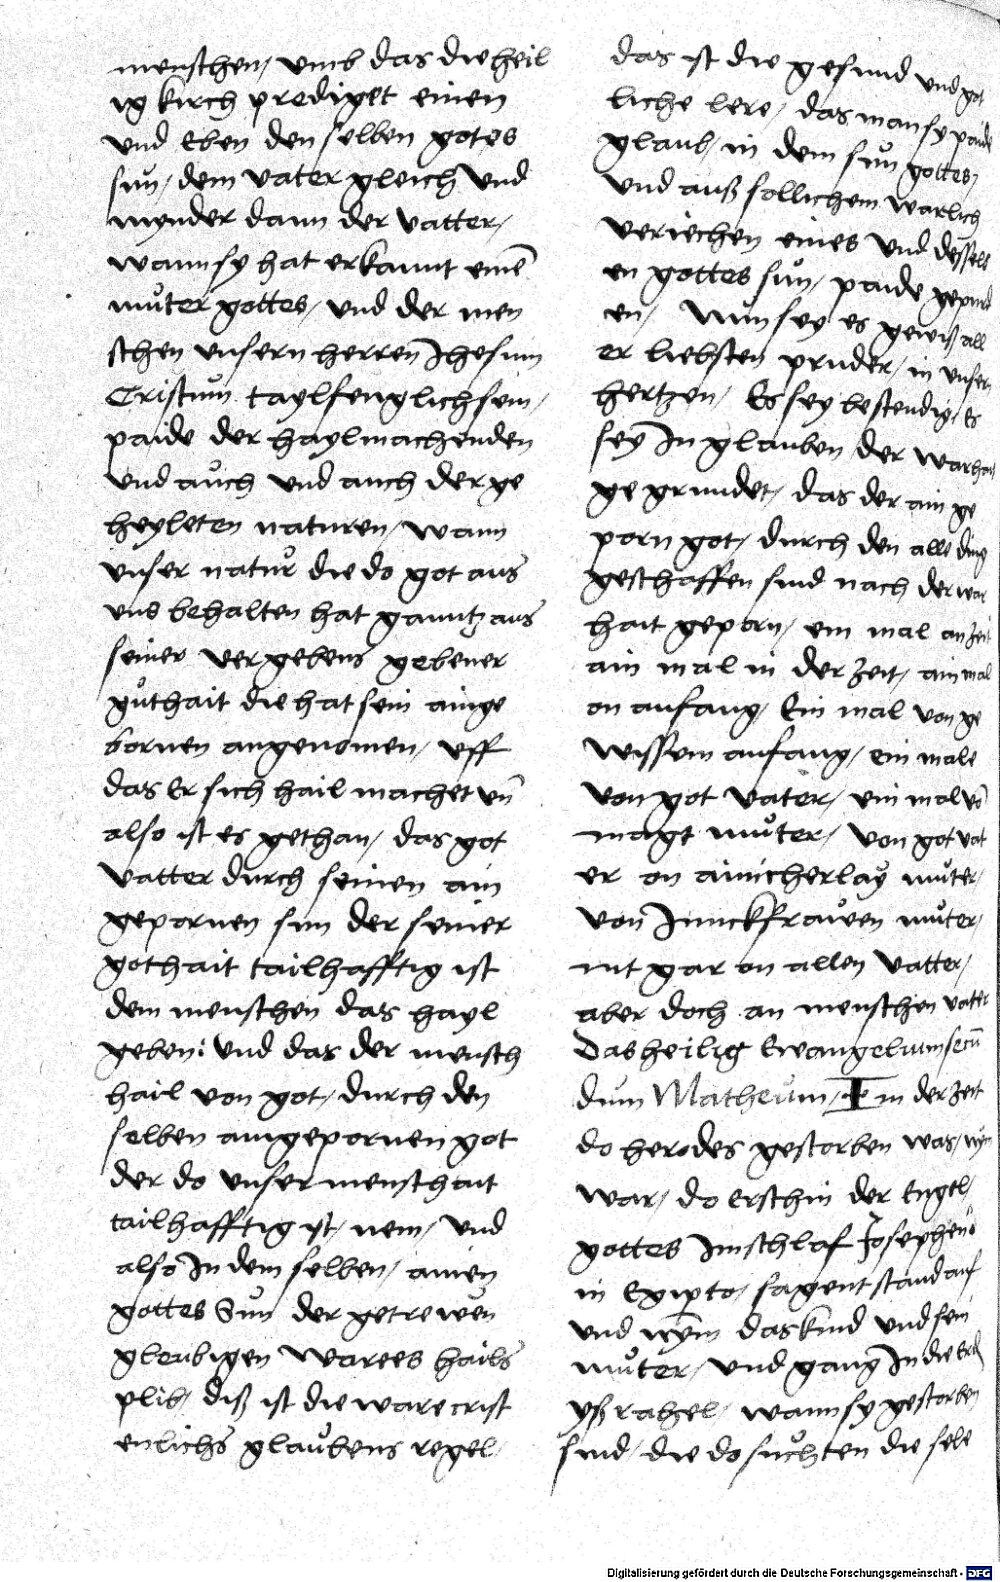 menschen / umb das die heil
ig kirch prediget einen
und Eben den selben gotes
sun / dem vater gleich und
mynder dann der vatter /
wann sy hat erkannt eine
můter gottes / und der men
schen unsern herren Jhesum
Cristum taylfenglich sein /
paide der haylmachenden
und aůch und auch der ge
heyleten naturen / wann
unser natůr die do got aus
uns behalten hat ganntz aus
seiner vergebens gebener
gůthait die hat sein ainge
bornen angenomen / uff
das Er sich hail machet un̄
also ist es gethan / das got
vatter durch seinen ain
gepornen sun der seiner
gothait tailhafftig ist
dem menschen das hayl
geben : und das der mensch
hail von got / durch den
selben aingepornen got
der do unser menschait
tailhafftig ist / nem / und
also In dem selben / ainen
gottes Sůn der getrewen
gleubigen warees hails
plib / diß ist die ware crist
enlichs glaůbens regel /
das ist die gesund und got
liche lere / das man sy paide
glaub / in dem sůn gottes /
und auß sollichem warlich
veriechen eines und dessels
en gottes sůn / paide gepurd
en / Nun sey es gewiß all
er liebsten pruder / in unser
hertzen / Es sey bestendig / Es
sey In glauben der warhait
gegrundet / das der ain ge
porn got / durch den alle ding
geschaffen sind nach der war
hait geporn / ein mal on zeit
ain mal in der zeit / ain mal
on anfang / Ein mal von ge
wissem anfang / ein male
von got vater / ein mal vō
magt můter / von got vat
er on ainicherlay můter /
von Junckfraůen můter /
nit gar on allen vatter /
aber doch an menschen vater
Das heilig Ewangelium secū
dum Matheum / I in der zeit
do herodes gestorben was / nym
war / do Erschin der Engel /
gottes Im schlaf Josephen
in Egipto / sagent stand auf
und nym das kind und sein
můter / und gang In die Erd
yßrahel / wann sy gestorben
sind / die do sůchten die sele